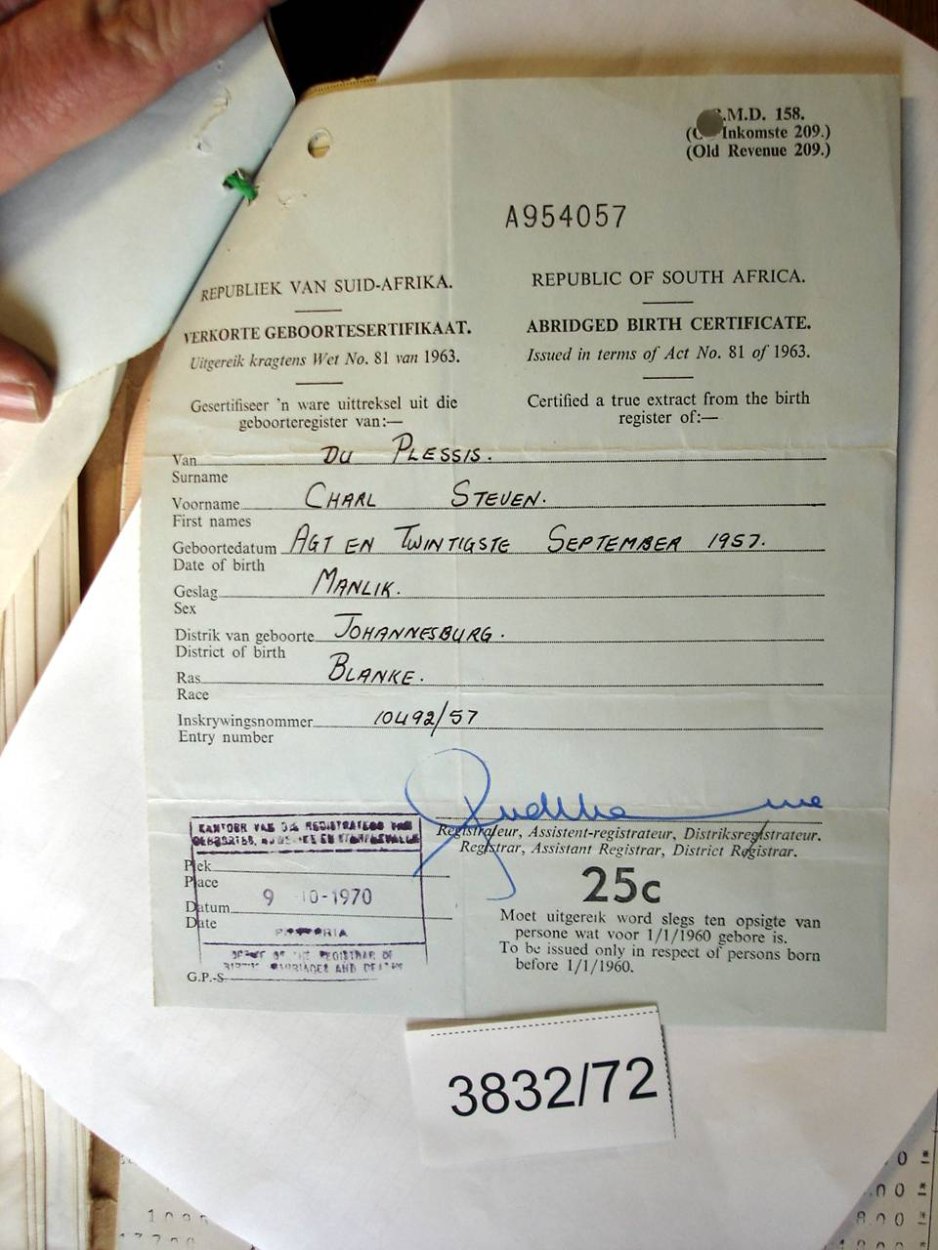 .M.D. 158.
Inkomste 209.)
(Old Revenue 209.)
A954057
REPUBLIEK VAN SUID-AFRIKA.
REPUBLIC OF SOUTH AFRICA.
VERKORTE GEBOORTESERTIFIKAAT.
ABRIDGED BIRTH CERTIFICATE.
Uitgereik kragtens Wet No. 81 van 1963.
Issued in terms of Act No. 81 of 1963.
Gesertifiseer 'n ware uittreksel uit die
geboorteregister van:—
Certified a true extract from the birth
register of:—
Van DU PLESSIS.
Surname
Voorname CHARL STEVEN.
First names
Geboortedatum AGT EN TWINTIGSTE SEPTEMBER 1957.
Date of birth
Geslag MANLIK.
Sex
Distrik van geboorte JOHANNESBURG.
District of birth
Ras BLANKE.
Race
Inskrywingsnommer 10492/57
Entry number
Registrateur, Assistent-registrateur, Distriksregistrateur.
Registrar, Assistant Registrar, District Registrar.
KANTOOR VAN DIE REGISTRATEUR VAN
GEBOORTES, HUWELIKE EN STERFGEVALLE
Plek
Place
Datum 9 -10-1970
Date
PRETORIA
OFFICE OF THE REGISTRAR OF
BIRTHS MARRIAGES AND DEATHS
G.P.-S
25c
Moet uitgereik word slegs ten opsigte van
persone wat voor 1/1/1960 gebore is.
To be issued only in respect of persons born
before 1/1/1960.
3832/72